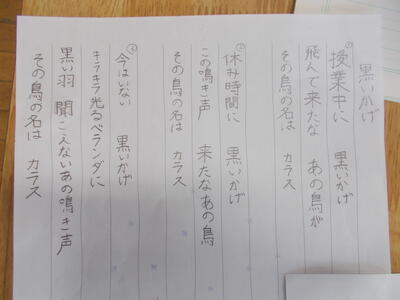 黒いかげ
① 授業中に 黒いかげ
飛んで来たな あの鳥が
その鳥の名は カラス
② 休み時間に 黒いかげ
この鳴き声 来たなあの鳥
その鳥の名は カラス
③ 今はいない 黒いかげ
キラキラ光るベランダに
黒い羽 聞こえないあの鳴き声
その鳥の名は カラス